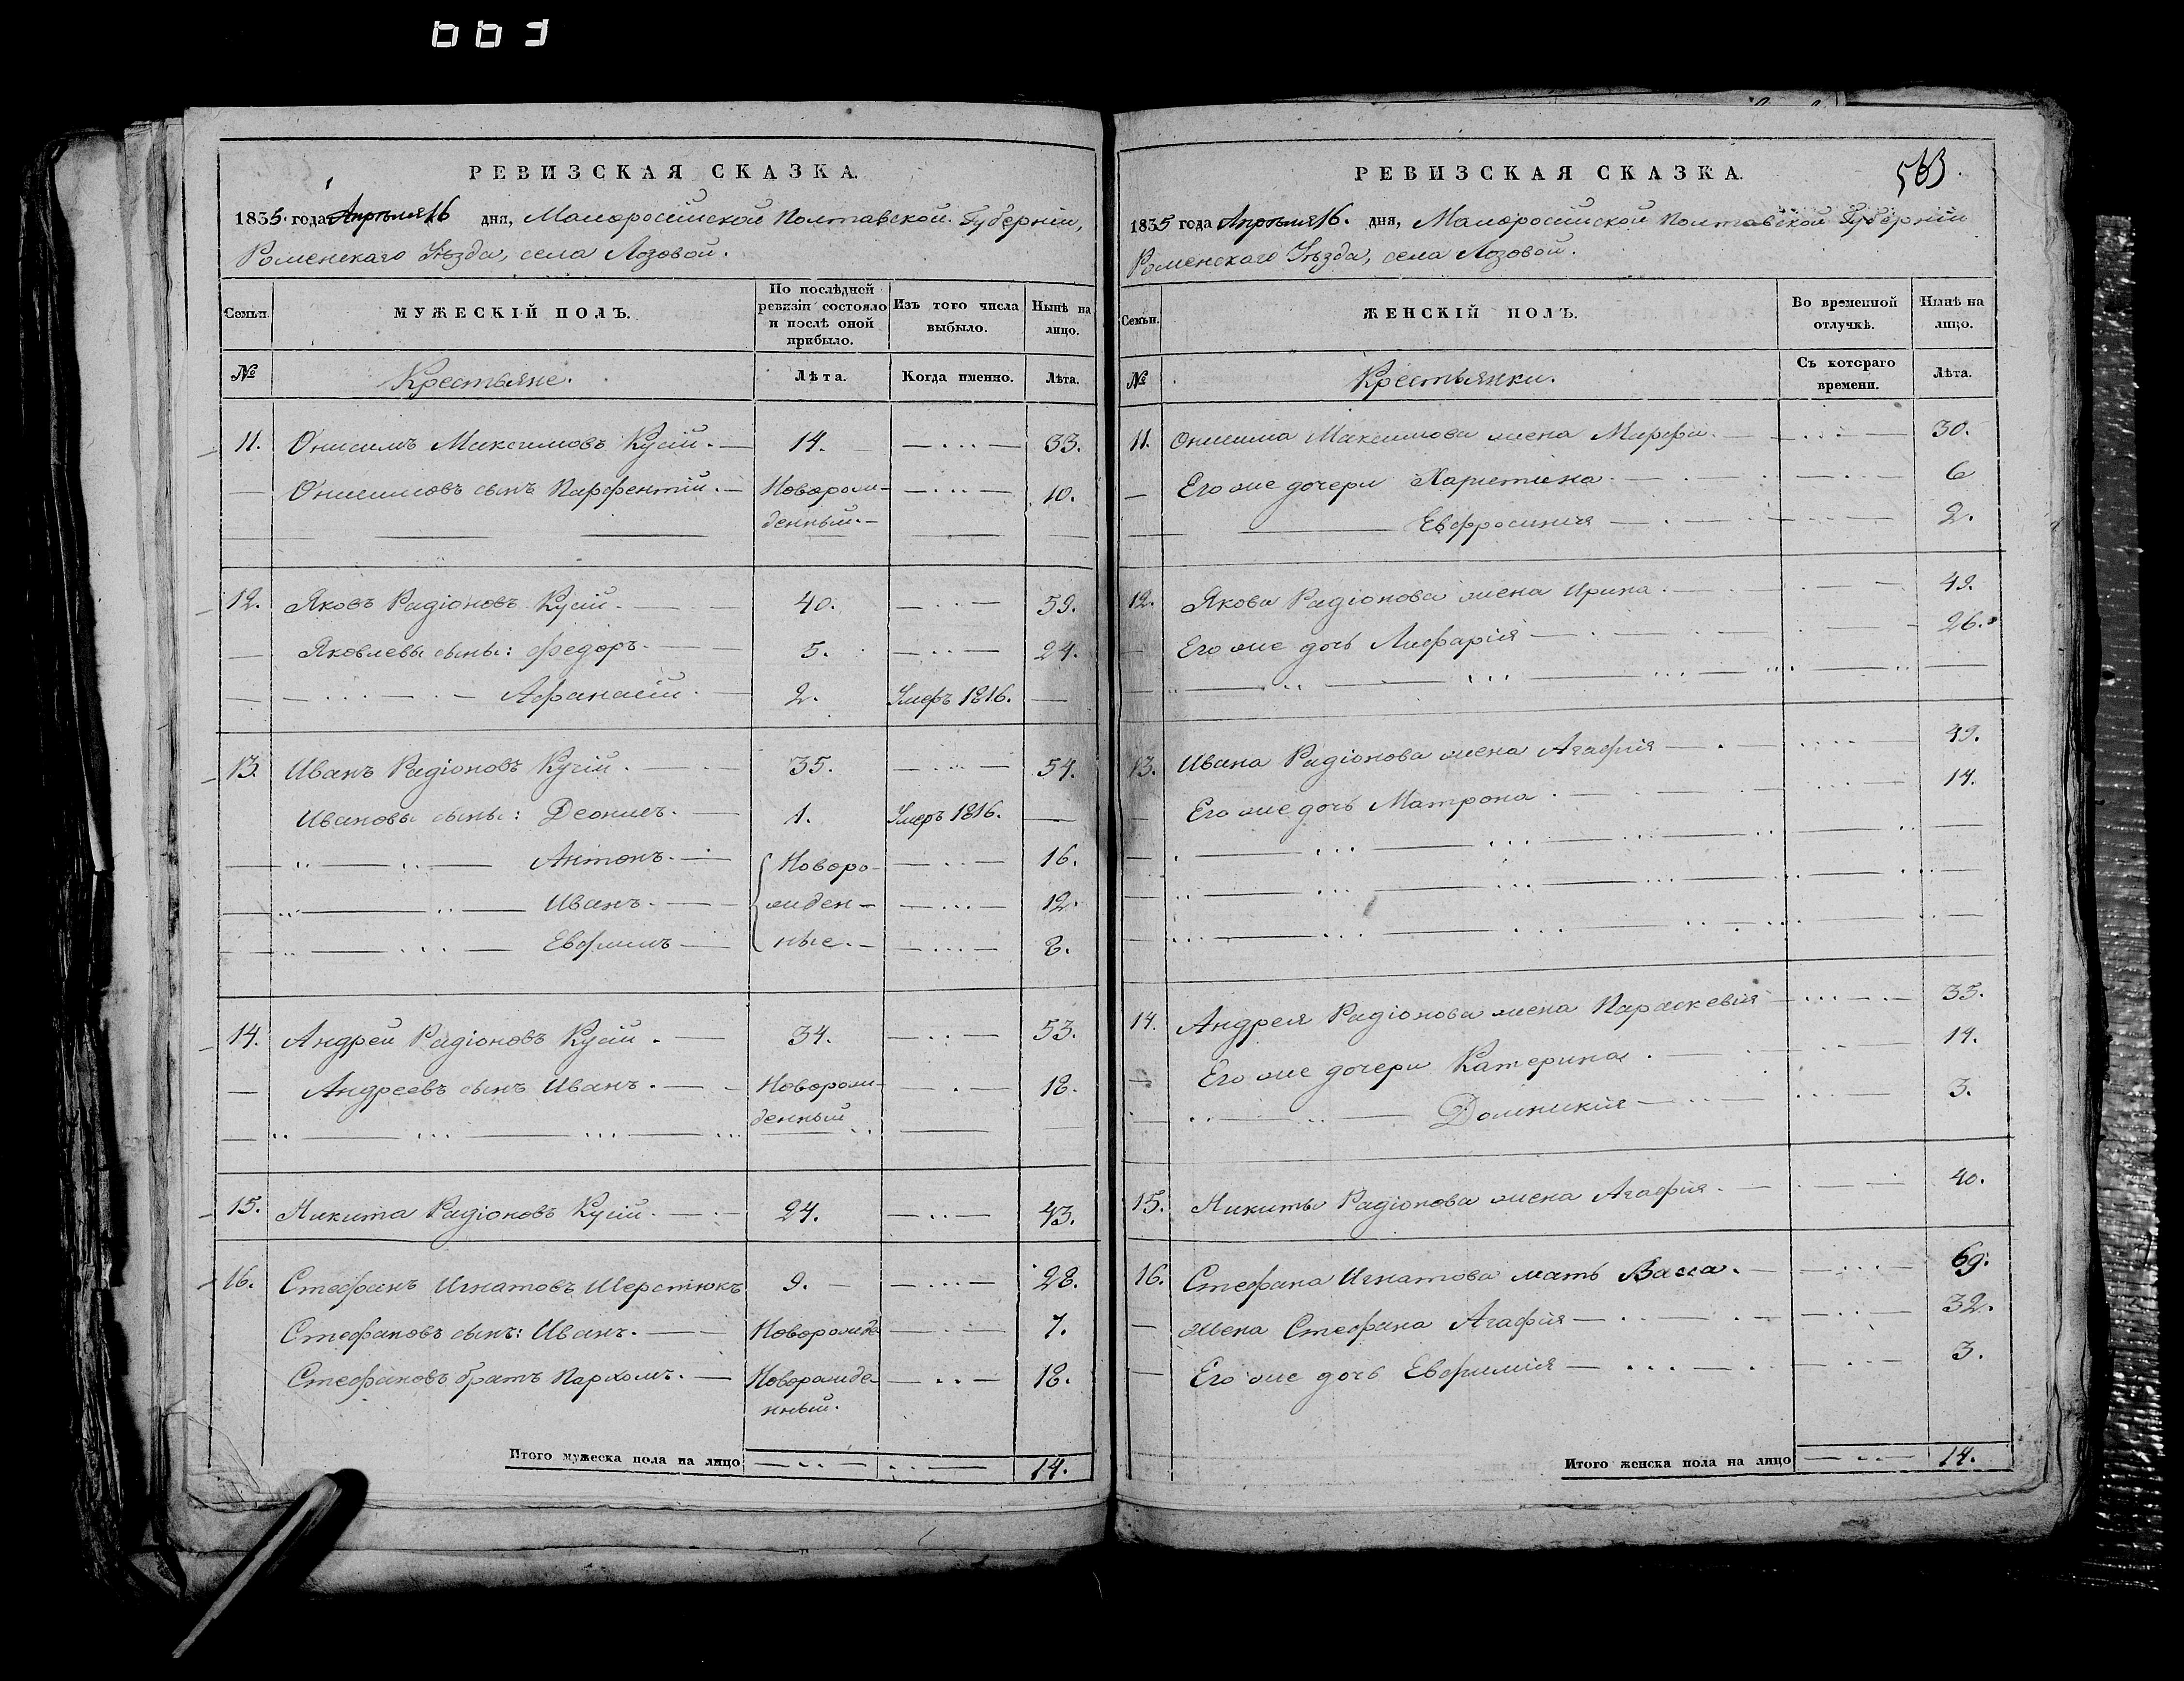 663
РЕВИЗСКАЯ СКАЗКА.
1835. года Апрѣля 16 дня, Малоросійской Полтавской Губерніи,
Роменскаго Уѣзда, села Лозовой.
Семьи.
МУЖЕСКІЙ ПОЛЪ.
По послѣдней
ревизіи состояло
и послѣ оной
прибыло.
Изъ того числа
выбыло.
Нынѣ на
лицо.
№ Крестьяне. Лѣта. Когда именно. Лѣта.
11. Онисимъ Максимовъ Кусій. 14. 33.
Онисимовъ сынъ Парфентій. Новорож- 10.
денный.
12. Яковъ Радіоновъ Кусій. 40. 59.
Яковлевы сыны: Федоръ. 5. 24.
Афанасій. 2. Умеръ 1816.
13. Иванъ Радіоновъ Кусій. 35. 54.
Ивановы сыны: Деонисъ. 1. Умеръ 1816.
Антонъ. Новоро- 16.
Иванъ. жден- 12.
Евфимъ ные. 8.
14. Андрей Радіоновъ Кусій. 34. 53.
Андреевъ сынъ Иванъ. Новорож- 18.
денный
15. Никита Радіоновъ Кусій. 24. 43.
16. Стефанъ Игнатовъ Шерстюкъ 9. 28.
Стефановъ сынъ: Иванъ. Новорожде 7.
Стефановъ братъ Пархомъ. Новорожде- 18.
нный.
Итого мужеска пола на лицо 14.
РЕВИЗСКАЯ СКАЗКА.
563.
1835 года Апрѣля 16. дня, Малоросійской Полтавской Губерніи
Роменскаго Уѣзда, села Лозовой.
Семьи.
ЖЕНСКІЙ ПОЛЪ.
Во временной
отлучкѣ.
Нынѣ на
лицо.
№ Крестьянки.
Съ котораго
времени.
Лѣта.
11. Онисима Максимова жена Марфа. 30.
Его же дочери Харистина. 6
Евфросинія 2.
12. Якова Радіонова жена Ирина. 49.
Его же дочь Лифарія 26.
13. Ивана Радіонова жена Агафія 49.
Его же дочь Матрона. 14.
14. Андрея Радіонова жена Параскевія 35.
Его же дочери Катерина. 14.
Домникія 3.
15. Никиты Радіонова жена Агафія. 40.
16. Стефана Игнатова мать Васса. 69.
Жена Стефана Агафія 32.
Его же дочь Евфимія 3.
Итого женска пола на лицо 14.